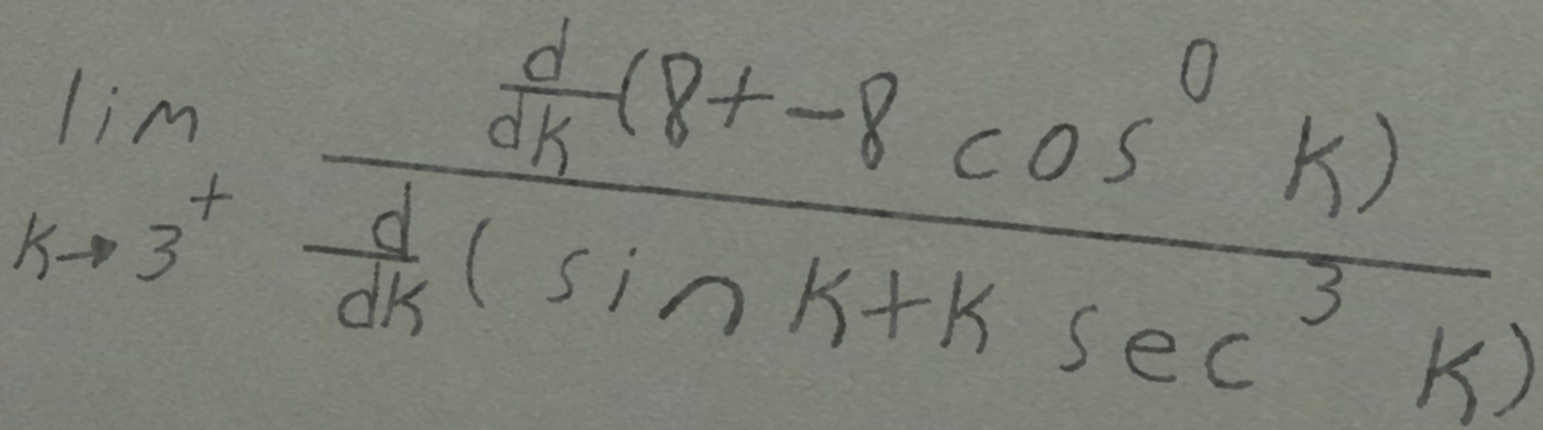 \lim_{k \to 3^+} \frac{\frac{d}{dk}(8+-8\cos^0 k)}{\frac{d}{dk}(\sin k+k\sec^3 k)}